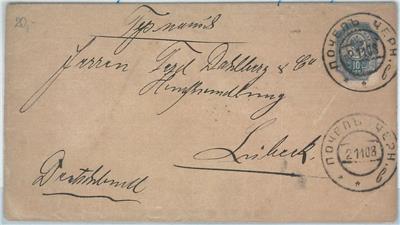 20,-
Германія
ПОЧЕПЪ ЧЕРН.
10
Herren Ferd Dahlberg & Co
Lübeck.
ПОЧЕПЪ ЧЕРН.
2 11 08
Deutschland